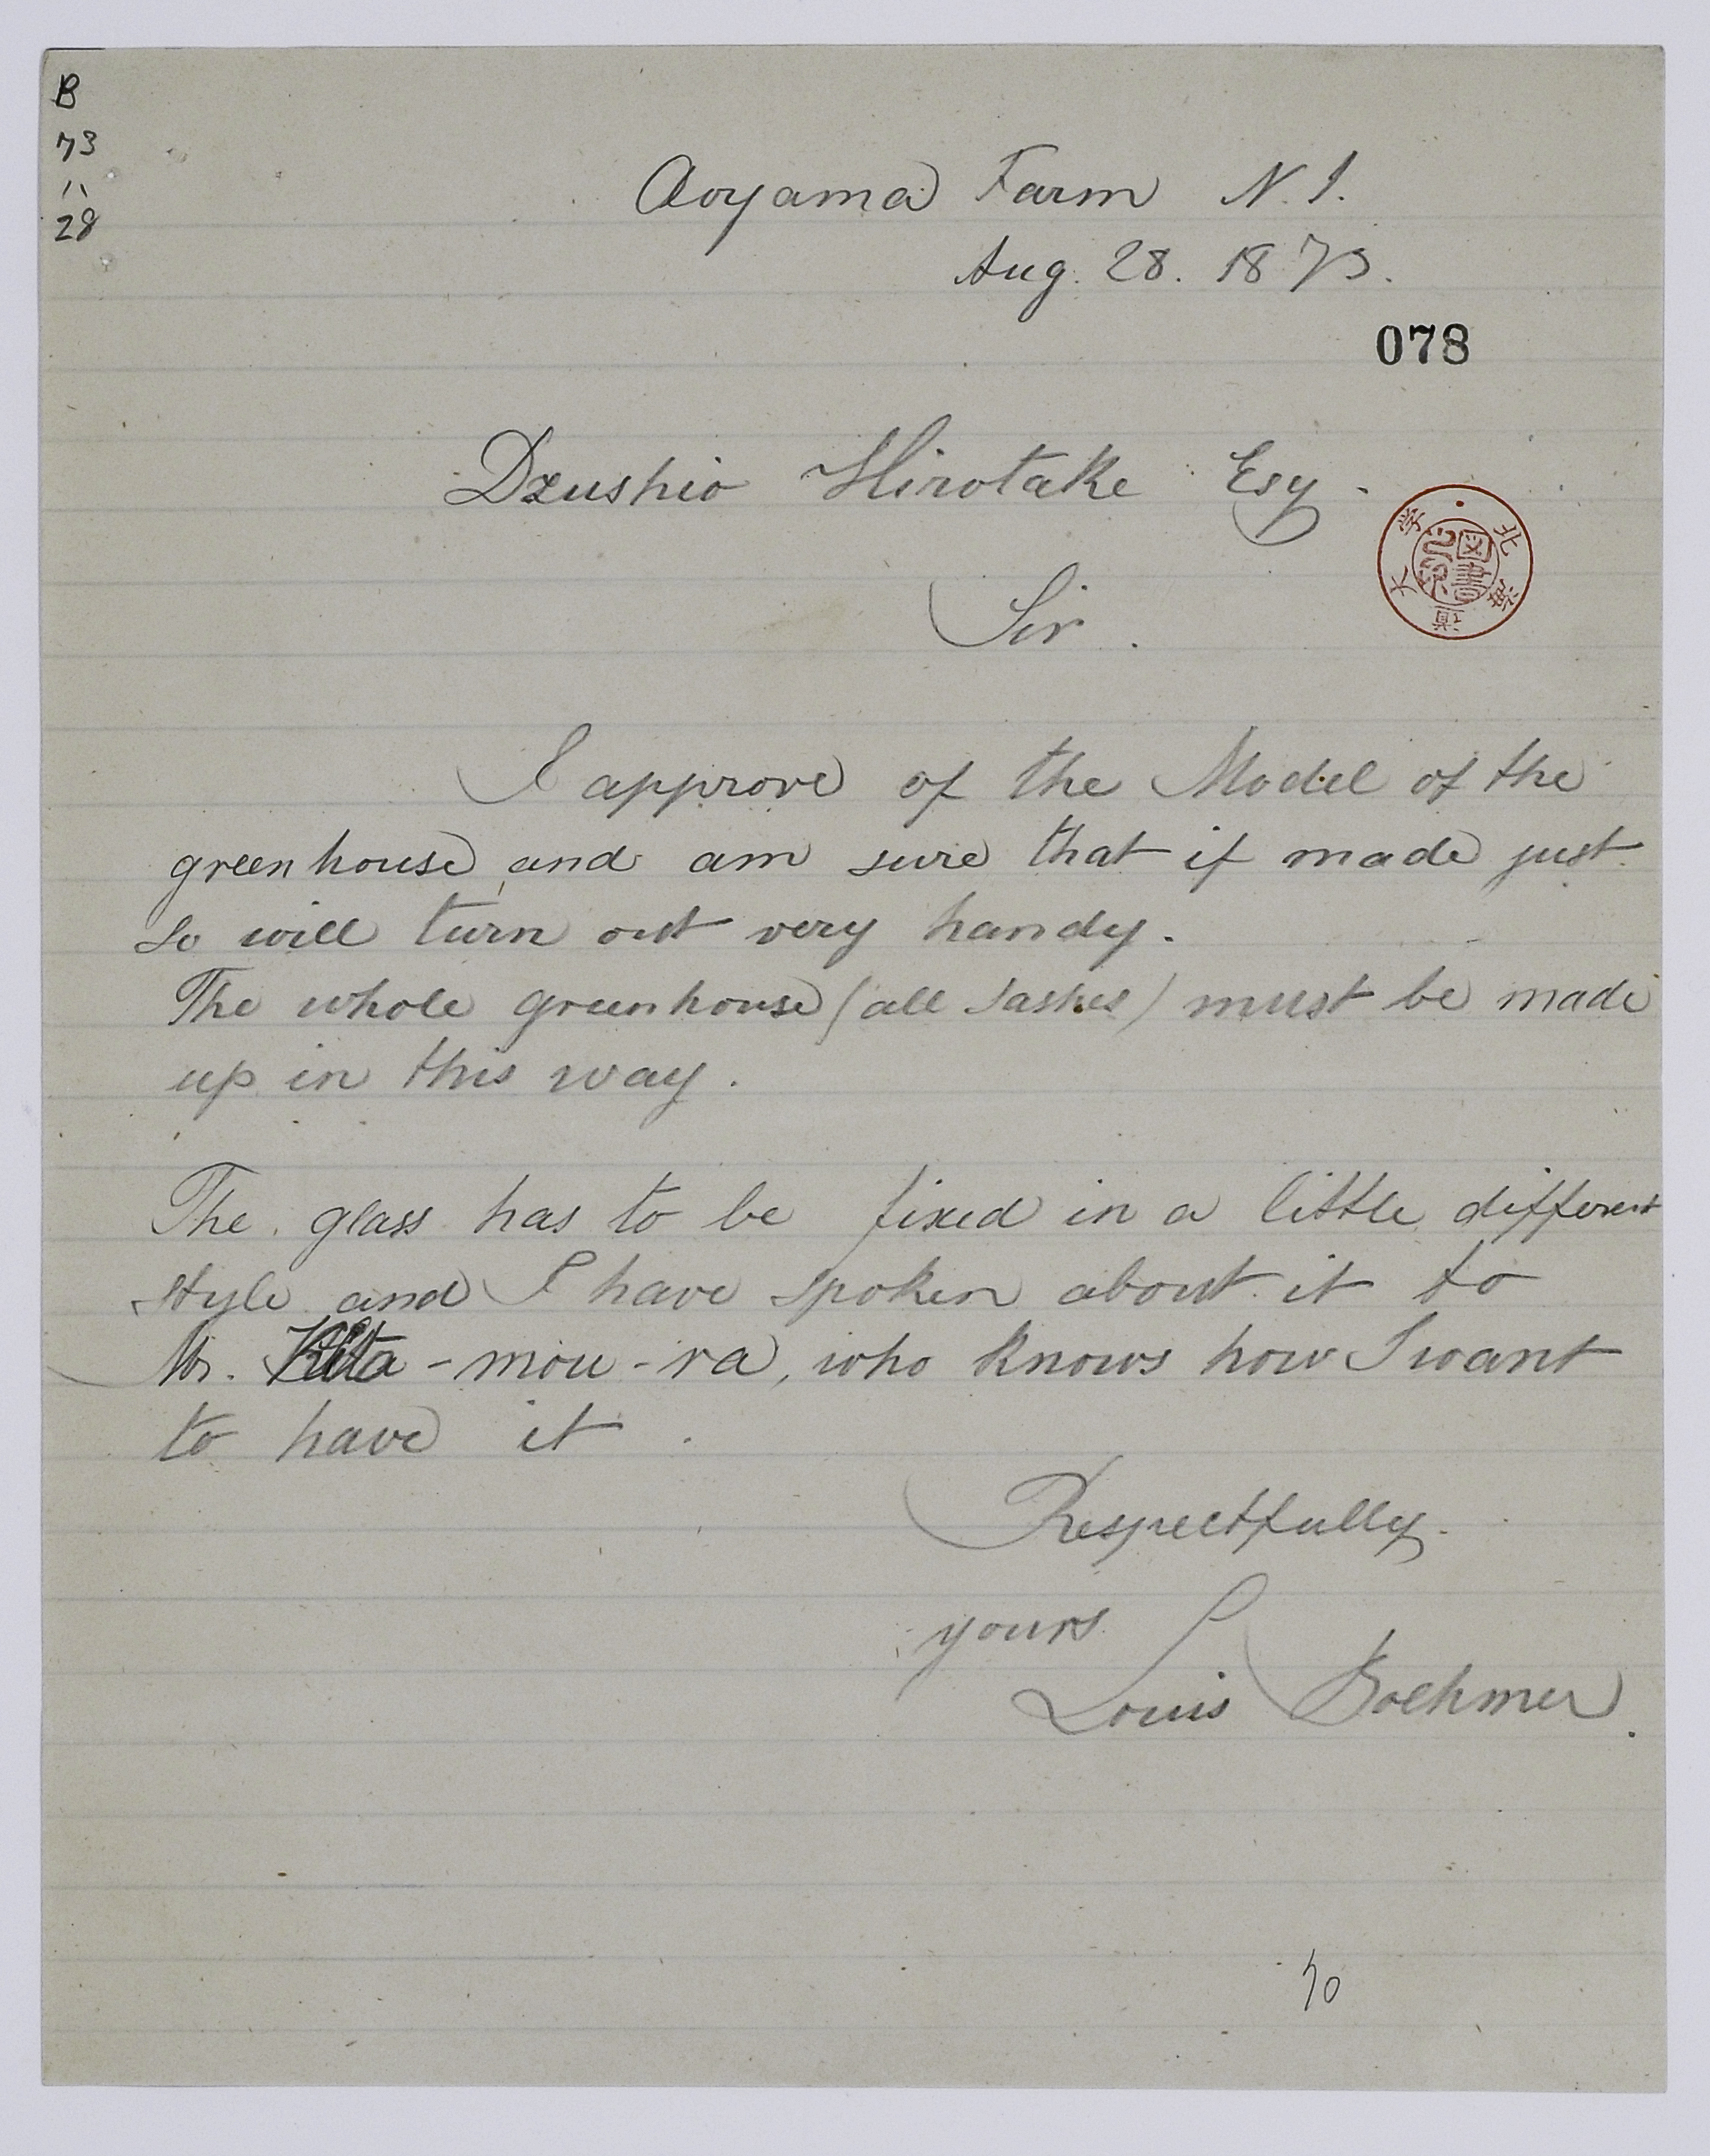 B
73
11
28
Aoyama Farm N. I.
Aug. 28. 1873.
078
Dzushio Hirotake Esq.
北海道大学
図書
Sir.
I approve of the Model of the
greenhouse and am sure that if made just
so will turn out very handy.
The whole greenhouse (all sashes) must be made
up in this way.
The glass has to be fixed in a little different
style and I have spoken about it to
Mr. Kita-mou-ra, who knows how I want
to have it.
Respectfully
yours
Louis Boehmer.
70